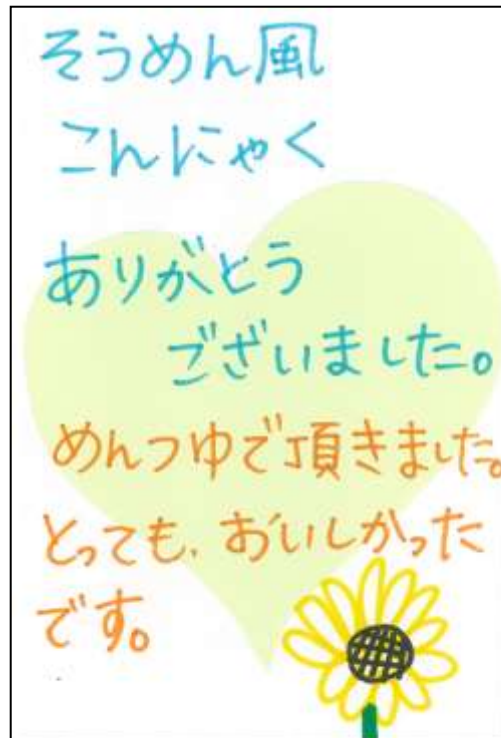 そうめん風
こんにゃく
ありがとう
ございました。
めんつゆで頂きました。
とっても、おいしかった
です。